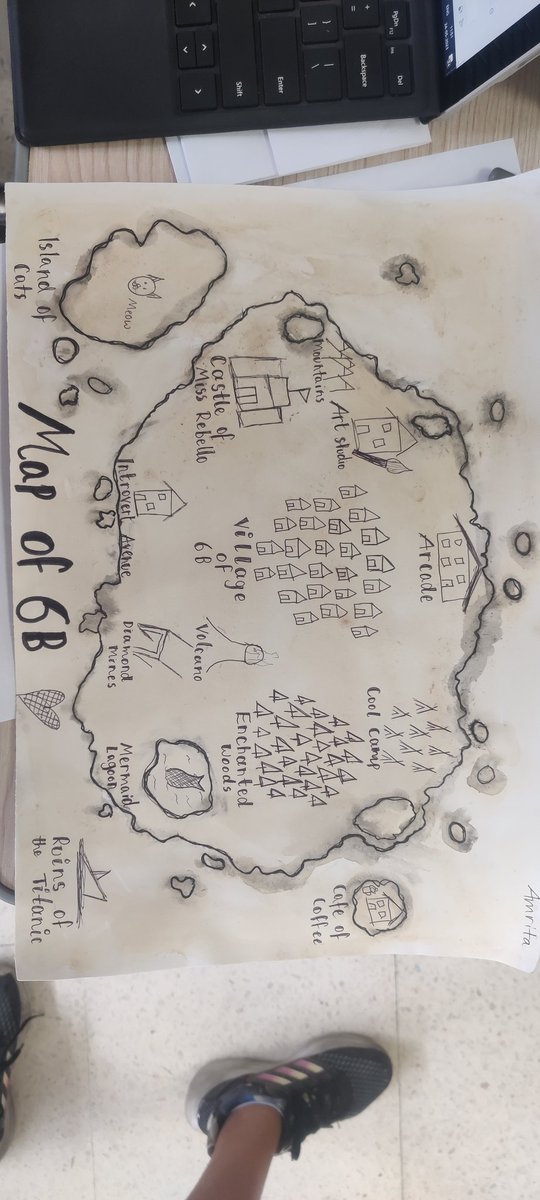 Amrita
Arcade
Cool Camp
Art studio
Mountains
Cafe of
Coffee
Village
of
6B
Enchanted
Woods
Castle of
Miss Rebello
Volcano
Meow
Introvert Avenue
Diamond
Mines
Mermaid
Lagoon
Island of
Cats
Map of 6B
Ruins of
the Titanic
PgDn
F12
Ins
Del
Backspace
Enter
Shift